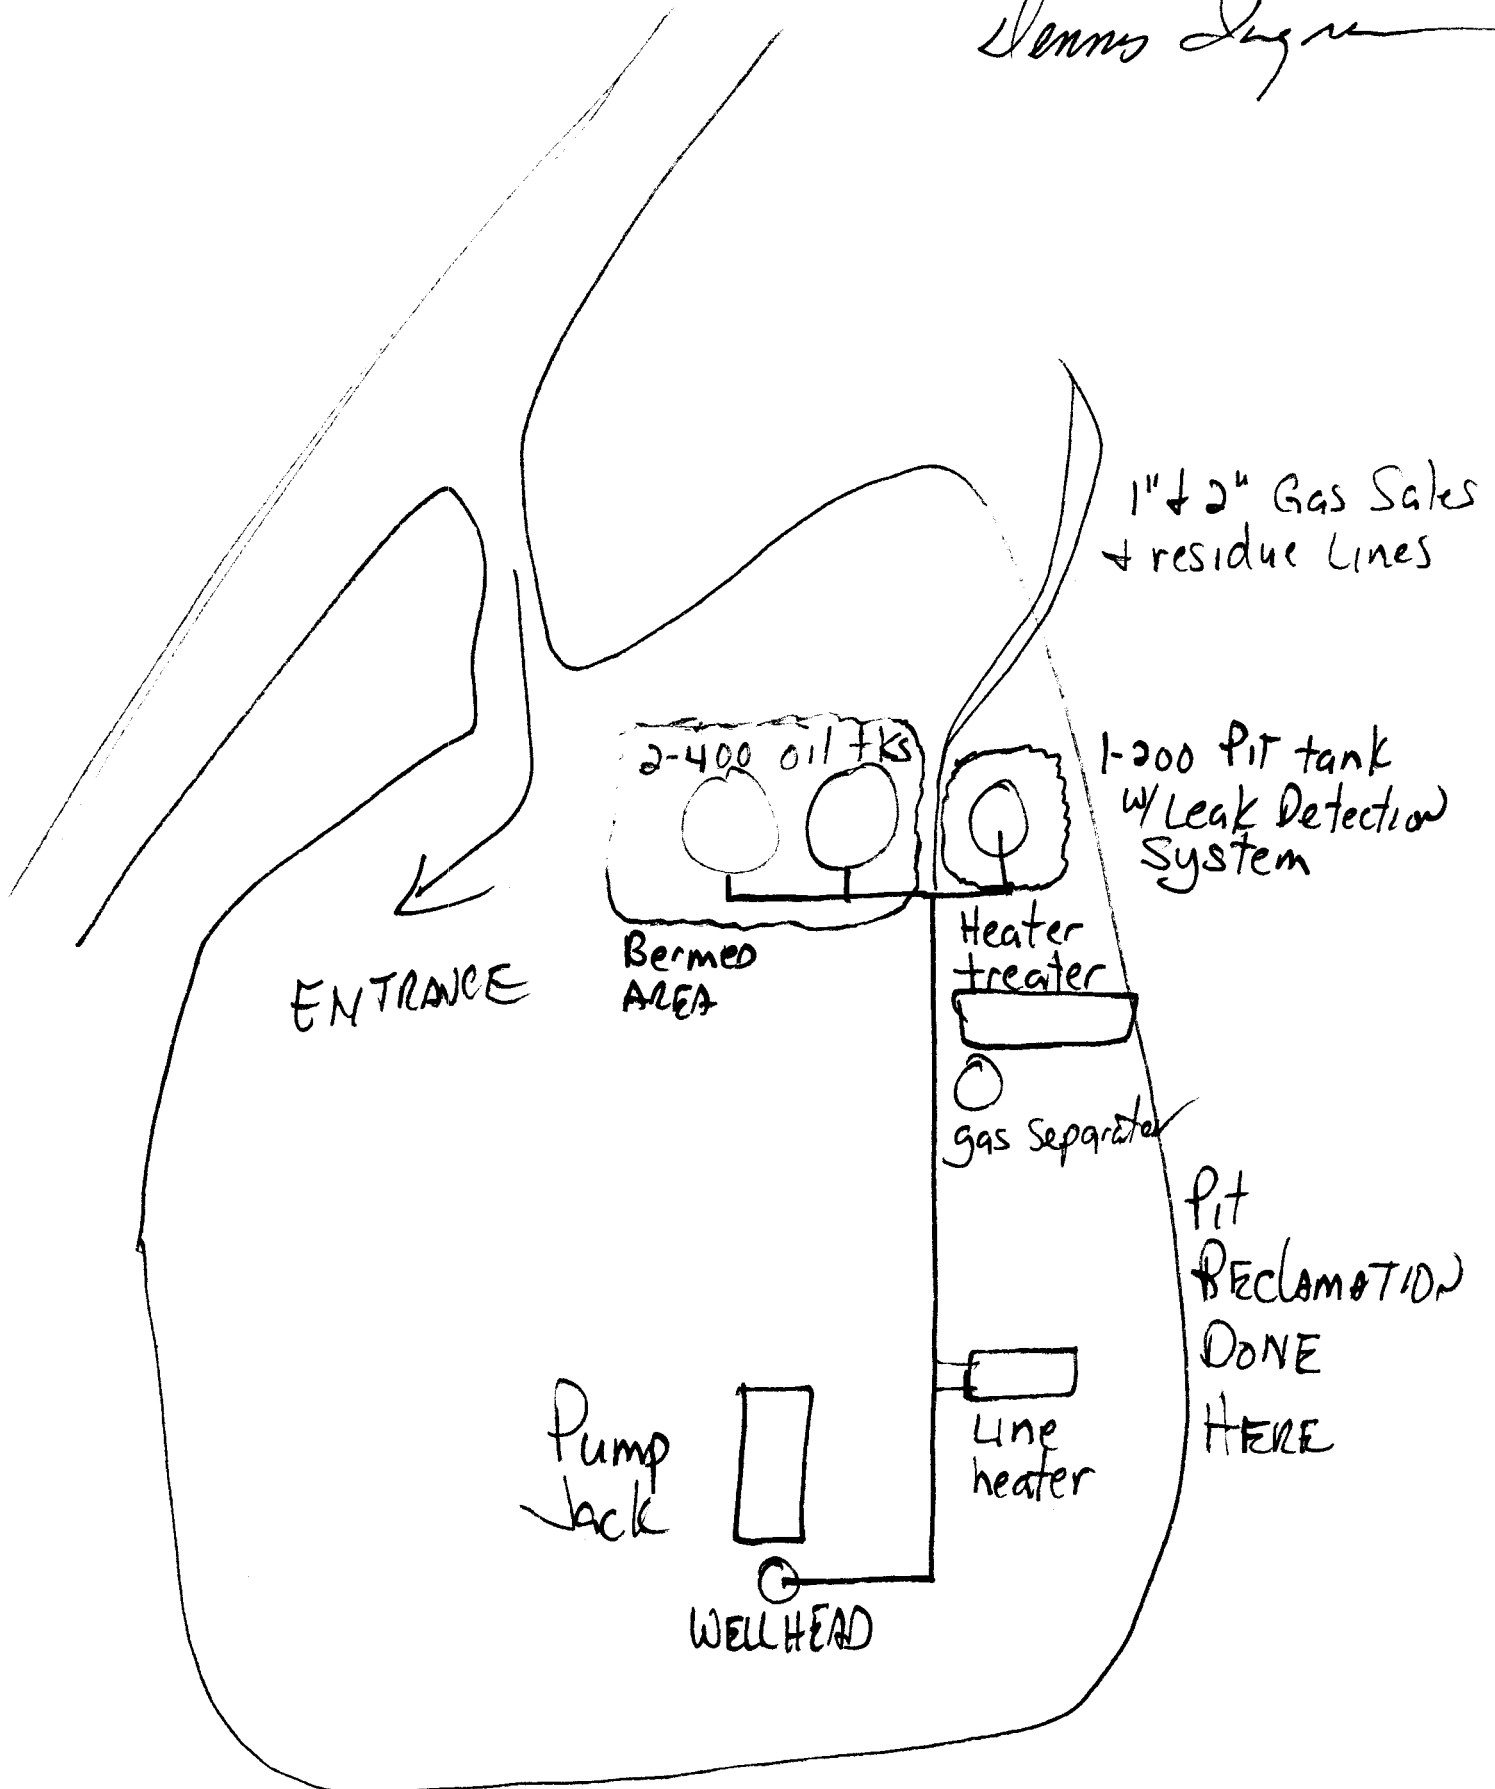 Dennis Ingram
1" & 2" Gas Sales
& residue Lines
2-400 oil tks
1-200 Pit tank
w/ Leak Detection
System
Bermed
AREA
Heater
treater
ENTRANCE
gas Separater
Pit
REClAMATION
DONE
HERE
Pump
Jack
Line
heater
WELLHEAD